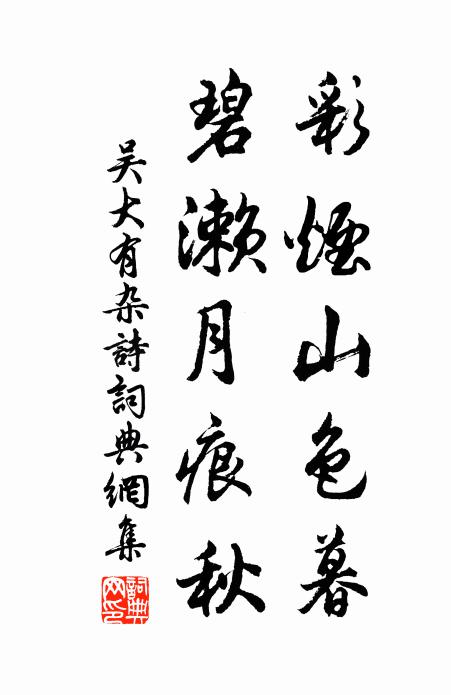 彩煙山色暮
碧瀨月痕秋
吴大有杂詩詞典網集
詞典網印